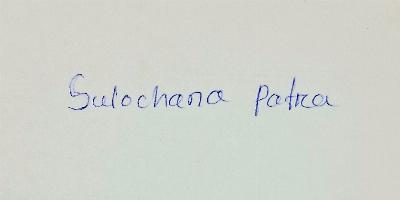 Sulochana Patra